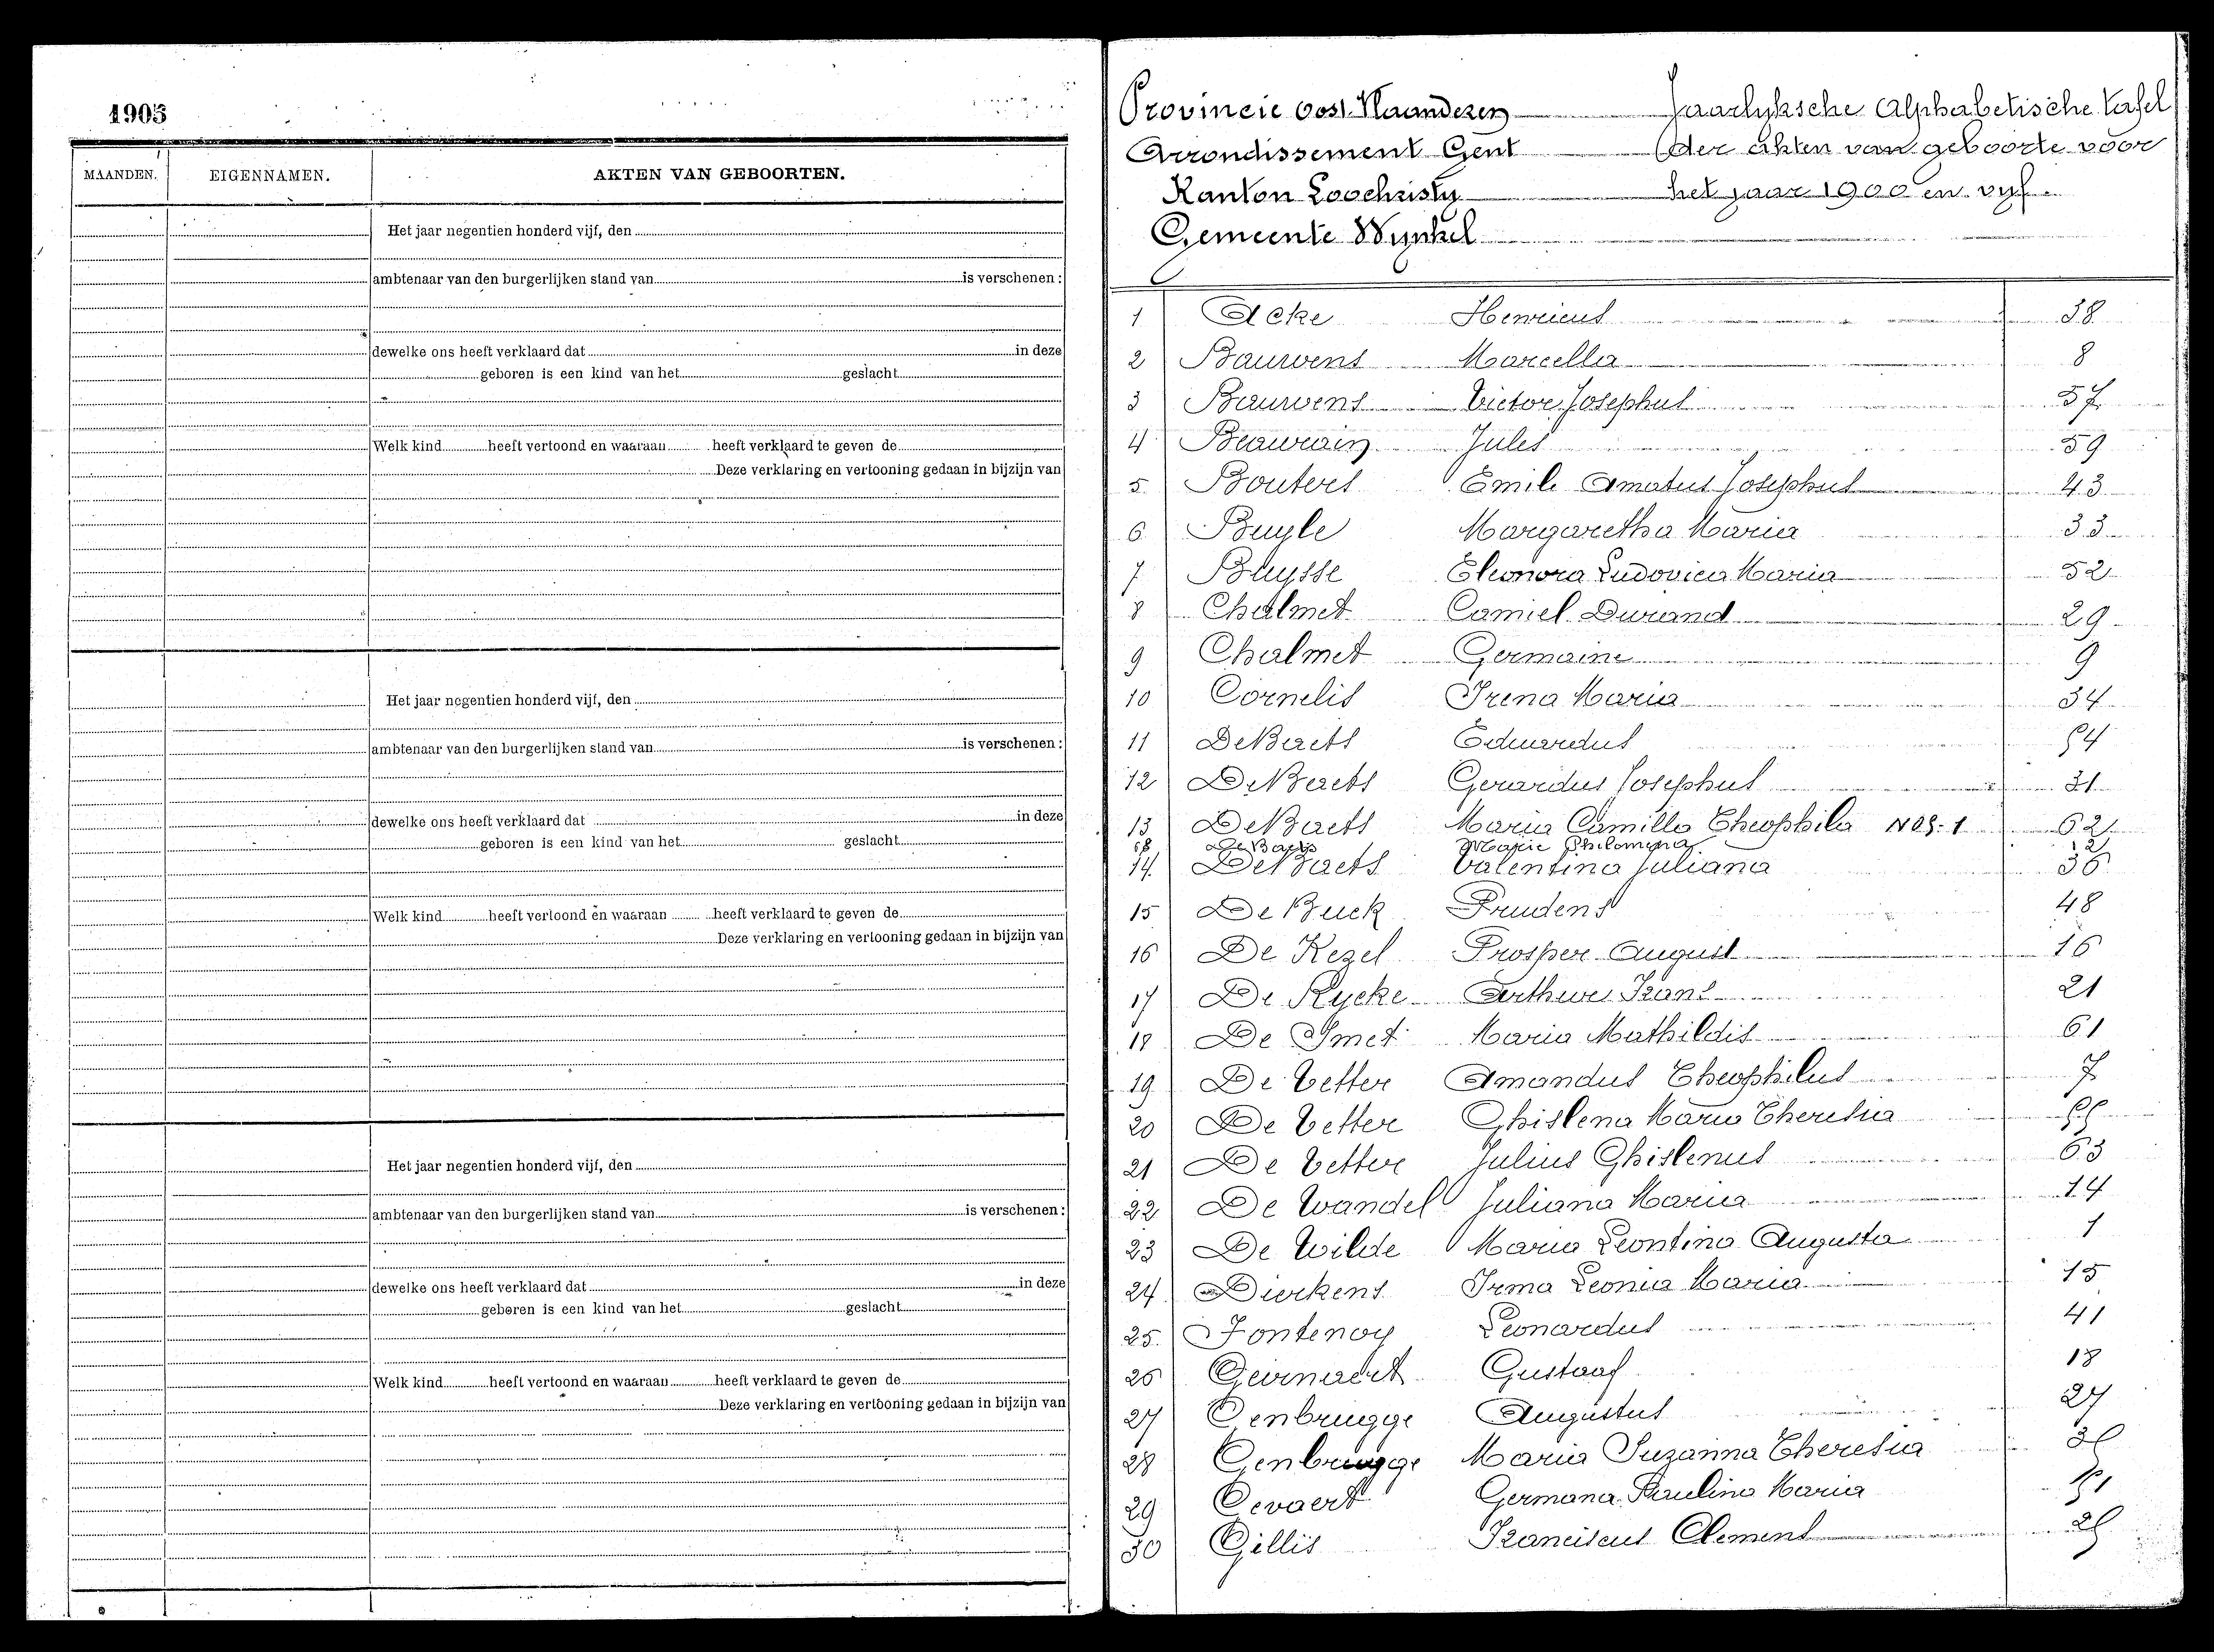 1905
MAANDEN. EIGENNAMEN. AKTEN VAN GEBOORTEN.
Het jaar negentien honderd vijf, den
ambtenaar van den burgerlijken stand van is verschenen :
dewelke ons heeft verklaard dat in deze
geboren is een kind van het geslacht
Welk kind heeft vertoond en waaraan heeft verklaard te geven de
Deze verklaring en vertooning gedaan in bijzijn van
Het jaar negentien honderd vijf, den
ambtenaar van den burgerlijken stand van is verschenen :
dewelke ons heeft verklaard dat in deze
geboren is een kind van het geslacht
Welk kind heeft vertoond en waaraan heeft verklaard te geven de
Deze verklaring en vertooning gedaan in bijzijn van
Het jaar negentien honderd vijf, den
ambtenaar van den burgerlijken stand van is verschenen :
dewelke ons heeft verklaard dat in deze
geboren is een kind van het geslacht
Welk kind heeft vertoond en waaraan heeft verklaard te geven de
Deze verklaring en vertooning gedaan in bijzijn van
Provincie Oost Vlaanderen Jaarlyksche Alphabetische tafel
Arrondissement Gent der akten van geboorte voor
Kanton Loochristy het jaar 1900 en vyf.
Gemeente Wynkel
1 Acke Henricus 38
2 Bauwens Marcella 8
3 Bauwens Victor Josephus 57
4 Beaurain Jules 59
5 Bouters Emile Amatus Josephus 43
6 Buyle Margaretha Maria 33
7 Buysse Eleonora Ludovica Maria 52
8 Chalmet Camiel Durand 29
9 Chalmet Germaine 9
10 Cornelis Irena Maria 34
11 DeBaets Eduardus 54
12 DeBaets Gerardus Josephus 31
13 DeBaets Maria Camilla Theophila 62
68 DeBaets Marie Philomena 12
14 DeBaets Valentina Juliana 36
15 De Buck Prudens 48
16 De Kezel Prosper August 16
17 De Rycke Arthur Frans 21
18 De Smet Maria Mathildis 61
19 De Vetter Amandus Theophilus 7
20 De Vetter Ghislena Maria Theresia 55
21 De Vetter Julius Ghislenus 63
22 De Wandel Juliana Maria 14
23 De Wilde Maria Leontina Augusta 1
24 Dierkens Irma Leonia Maria 15
25 Fontenoy Leonardus 41
26 Geirnaert Gustaaf 18
27 Genbrugge Augustus 27
28 Genbrugge Maria Suzanna Theresia
29 Gevaert Germana Paulina Maria
30 Gillis Franciscus Clement 25